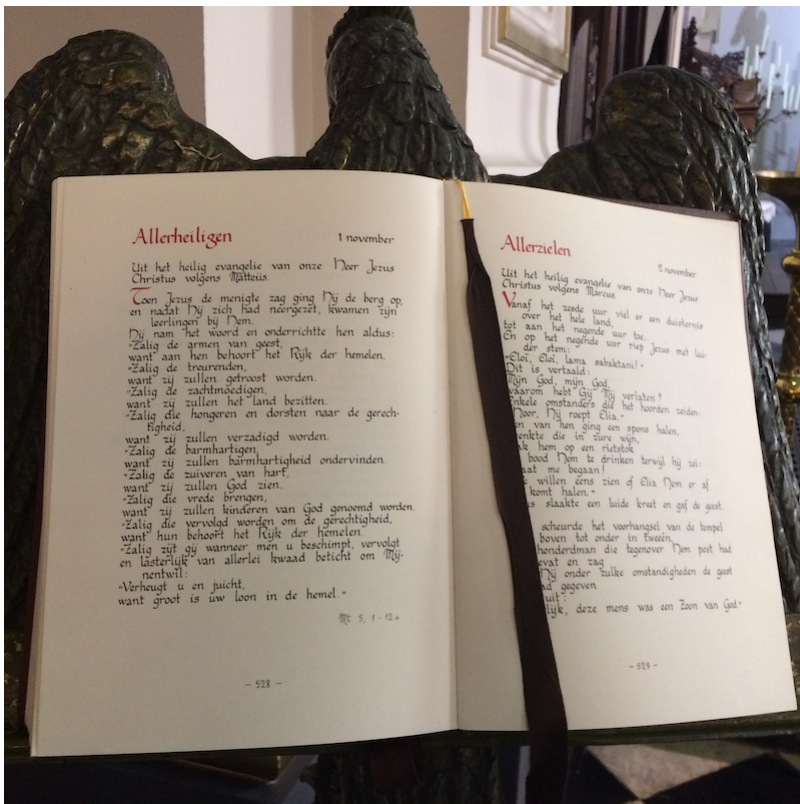 Allerheiligen 1 november
Uit het heilig evangelie van onze Heer Jezus
Christus volgens Matteüs.
Toen Jezus de menigte zag ging Hij de berg op,
en nadat Hij zich had neergezet, kwamen zijn
leerlingen bij Hem.
Hij nam het woord en onderrichtte hen aldus:
"Zalig de armen van geest,
want aan hen behoort het Rijk der hemelen.
"Zalig de treurenden,
want zij zullen getroost worden.
"Zalig de zachtmoedigen,
want zij zullen het land bezitten.
"Zalig die hongeren en dorsten naar de gerech-
tigheid,
want zij zullen verzadigd worden.
"Zalig de barmhartigen,
want zij zullen barmhartigheid ondervinden.
"Zalig de zuiveren van hart,
want zij zullen God zien.
"Zalig die vrede brengen,
want zij zullen kinderen van God genoemd worden.
"Zalig die vervolgd worden om de gerechtigheid,
want hun behoort het Rijk der hemelen.
"Zalig zijt gij wanneer men u beschimpt, vervolgt
en lasterlijk van allerlei kwaad beticht om Mij-
nentwil:
"Verheugt u en juicht,
want groot is uw loon in de hemel."
Mt 5, 1-12a
- 528 -
Allerzielen
2 november
Uit het heilig evangelie van onze Heer Jezus
Christus volgens Marcus.
Vanaf het zesde uur viel er een duisternis
over het hele land,
tot aan het negende uur toe.
En op het negende uur riep Jezus met lui-
der stem:
"Eloï, Eloï, lama sabaktani!"
Dit is vertaald:
Mijn God, mijn God,
waarom hebt Gij Mij verlaten?
Enkele omstanders die het hoorden zeiden:
"Hoor, Hij roept Elia."
en van hen ging een spons halen,
in zure wijn,
hem op een rietstok
bood Hem te drinken terwijl hij zei:
begaan!
willen eens zien of Elia Hem er af
komt halen."
slaakte een luide kreet en gaf de geest.
scheurde het voorhangsel van de tempel
boven tot onder in tweeën.
honderdman die tegenover Hem post had
en zag
Hij onder zulke omstandigheden de geest
gegeven
uit:
deze mens was een Zoon van God."
- 529 -